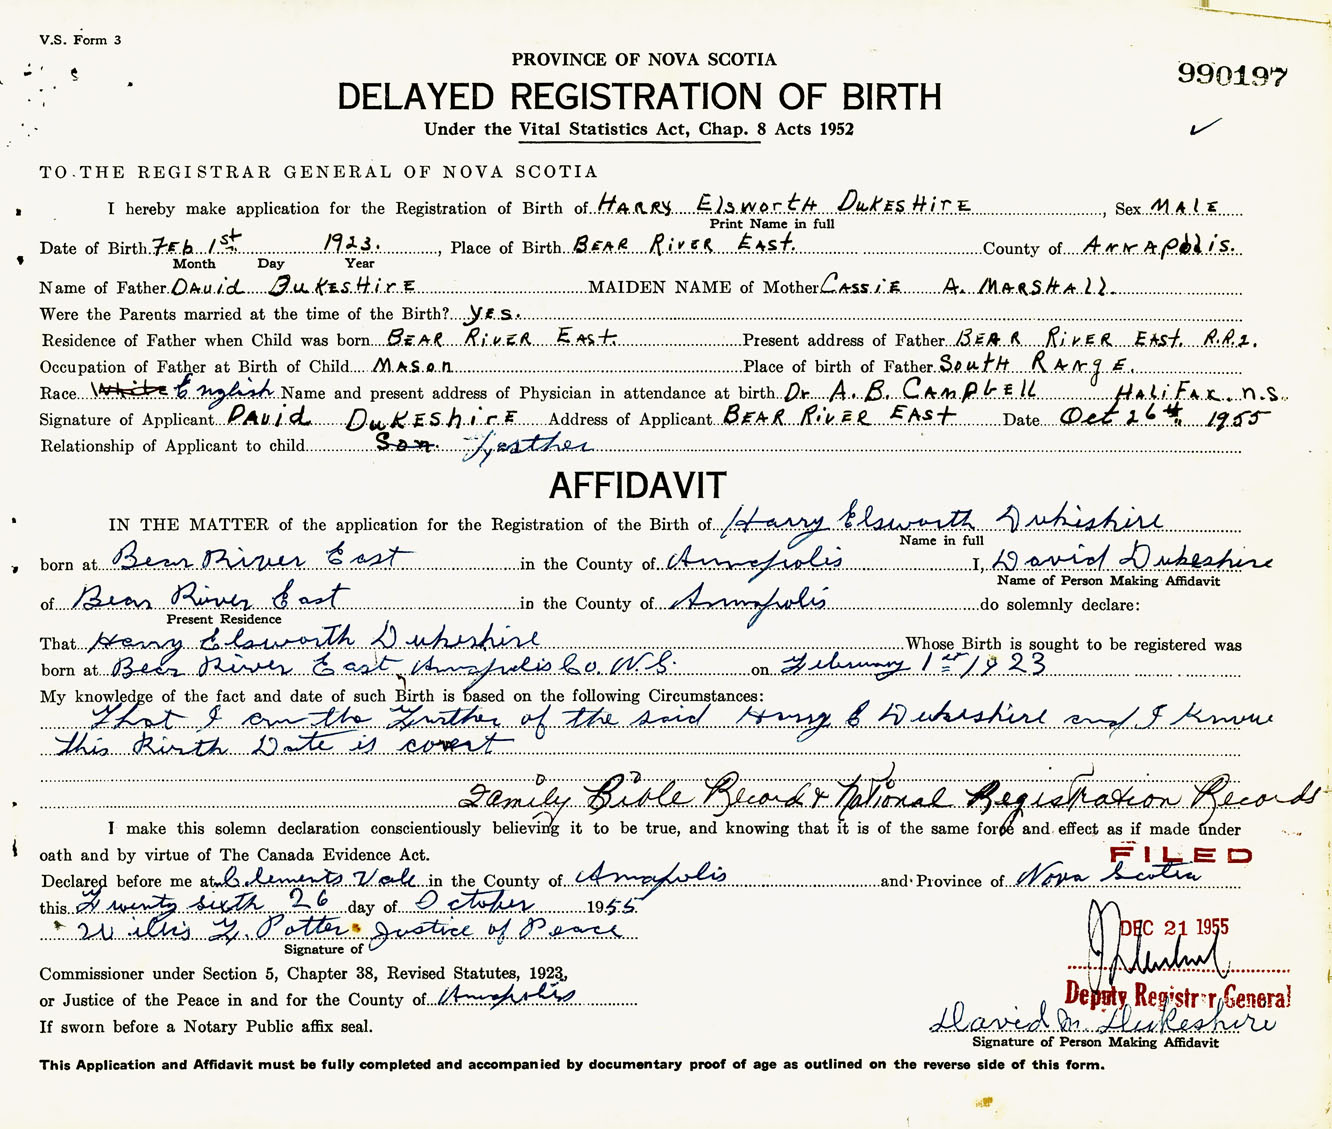 V.S. Form 3
PROVINCE OF NOVA SCOTIA
990197
DELAYED REGISTRATION OF BIRTH
Under the Vital Statistics Act, Chap. 8 Acts 1952
TO THE REGISTRAR GENERAL OF NOVA SCOTIA
I hereby make application for the Registration of Birth of HARRY ELSWORTH DUKESHIRE, Sex MALE
Print Name in full
Date of Birth FEB 1st 1923, Place of Birth BEAR RIVER EAST. County of ANNAPOLIS.
Month Day Year
Name of Father DAVID DUKESHIRE MAIDEN NAME of Mother CASSIE A. MARSHALL.
Were the Parents married at the time of the Birth? YES.
Residence of Father when Child was born BEAR RIVER EAST. Present address of Father BEAR RIVER EAST. R.R.2.
Occupation of Father at Birth of Child MASON Place of birth of Father SOUTH RANGE.
Race White English Name and present address of Physician in attendance at birth Dr A. B. CAMPBELL HALIFAX N.S.
Signature of Applicant DAVID DUKESHIRE Address of Applicant BEAR RIVER EAST Date Oct 26th 1955
Relationship of Applicant to child Son. Feather
AFFIDAVIT
IN THE MATTER of the application for the Registration of the Birth of Harry Elsworth Dukeshire
Name in full
born at Bear River East in the County of Annapolis I, David Dukeshire
Name of Person Making Affidavit
of Bear River East in the County of Annapolis do solemnly declare:
Present Residence
That Harry Elsworth Dukeshire Whose Birth is sought to be registered was
born at Bear River East, Annapolis Co. N.S. on February 1st 1923
My knowledge of the fact and date of such Birth is based on the following Circumstances:
That I am the Father of the said Harry E Dukeshire and I Know
this Birth Date is corect
Family Bible Record & National Registration Records
I make this solemn declaration conscientiously believing it to be true, and knowing that it is of the same force and effect as if made under
oath and by virtue of The Canada Evidence Act.
FILED
Declared before me at Clements Vale in the County of Annapolis and Province of Nova Scotia
this Twenty sixth 26 day of October 1955
DEC 21 1955
Willis Potter Justice of Peace
Signature of
Commissioner under Section 5, Chapter 38, Revised Statutes, 1923,
Deputy Registrar General
or Justice of the Peace in and for the County of Annapolis
If sworn before a Notary Public affix seal.
David M. Dukeshire
Signature of Person Making Affidavit
This Application and Affidavit must be fully completed and accompanied by documentary proof of age as outlined on the reverse side of this form.